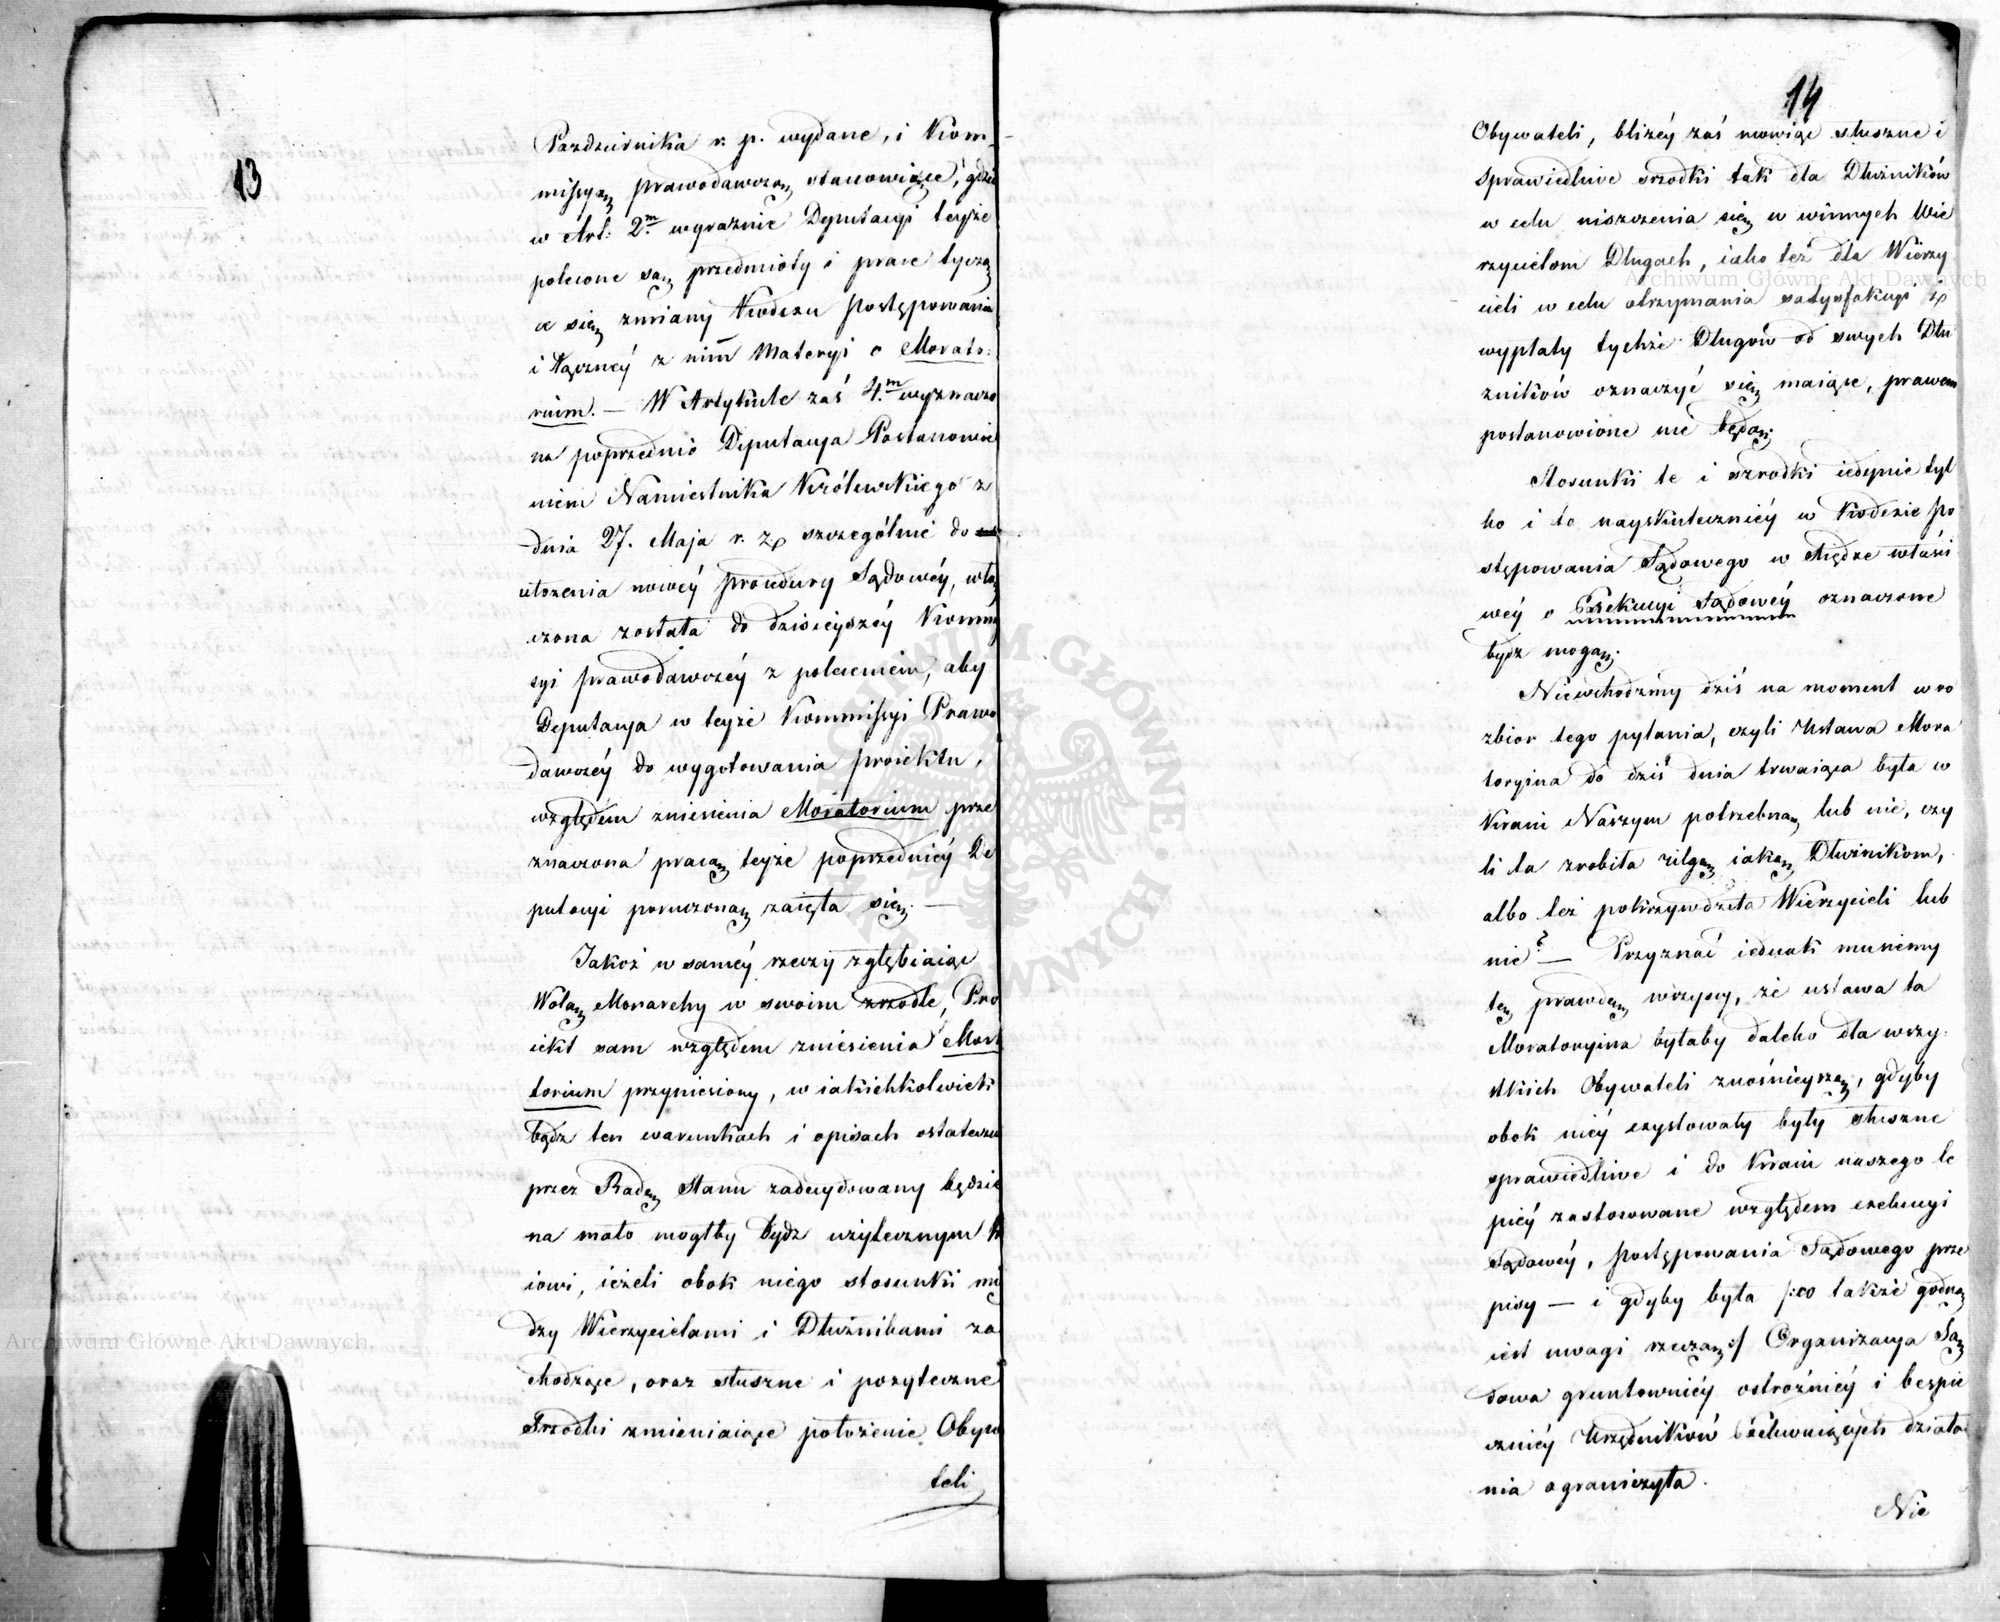 13
Pazdziernika r. p. wydane, i Kom-
missyą prawodawczą stanowiące, gdzie
w Art: 2.m wyraznie Deputacyi teyże
polecone są przedmioty i prace tyczą
ce się zmiany Kodexu Postępowania
i łączney z nim Materyi o Morato:
rium. — W Artykule zaś 4.m wyznaczo
na poprzednio Deputacya Postanowie
niem Namiestnika Królewskiego z
dnia 27. Maja r. zp szczególnie do
ułożenia nowéy procedury Sądowéy, włą
czona została do dzisieyszéy Kommis
syi prawodawczéy z poleceniem, aby
Deputacya w teyże Kommissyi Prawo
dawczéy do wygotowania proiektu,
względem zniesienia Moratorium prze
znaczona pracą teyże poprzedniéy De
putacyi poruczoną zaięła się. —
Jakoż w saméy rzeczy zgłębiaiąc
Wolą Monarchy w swoim zrzodle, Pro
iekt sam względem zniesienia Mora
torium przyniesiony, w iakichkolwiek
bądz ten warunkach i opisach ostateczn
przez Radę Stanu zadecydowany będzie
na mało mogłby bydz użytecznym Kr
iowi, ieżeli obok niego stosunki mię
dzy Wierzycielami i Dłużnikami za
chodzące, oraz słuszne i pozyteczne
Srzodki zmieniaiące położenie Obywa
teli
14
Obywateli, bliżéy zaś mowiąc słuszne i
sprawiedliwe srzodki tak dla Dłużników
w celu niszczenia się w winnych Wie
rzycielom Długach, iako też dla Wierzy
cieli w celu otrzymania satysfakcyi zp
wypłaty tychże Długów od swych Dłu
zników oznaczyć się maiące, prawem
postanowione nie będą.
Stosunki te i szrodki iedynie tyl
ko i to nayskuteczniéy w Kodexie Po
stępowania Sądowego w Xiędze właści
wéy o Exekucyi Sądowéy oznaczone
bydz mogą.
Niewchodzmy dziś na moment w ro
zbior tego pytania, czyli Ustawa Mora
toryina do dziś dnia trwaiąca była w
Kraiu Naszym potrzebną lub nie, czy
li ta zrobiła ulgę iaką Dłużnikom,
albo też pokrzywdziła Wierzycieli lub
nie? — Przyznać iednak musiemy
tę prawdę wszyscy, że ustawa ta
Moratoryina byłaby daleko dla wszy:
stkich Obywateli znośnieyszą, gdyby
obok niéy exystowały były słuszne
sprawiedliwe i do Kraiu naszego le
piéy zastosowane względem exekucyi
Sądowéy, Postępowania Sądowego prze
pisy — i gdyby była /:co także godną
iest uwagi rzeczą:/ Organizacya Są
dowa gruntowniéy ostrożniéy i bespie
czniéy Urzędników Exekwuiących działa
nia ograniczyła.
Nie
Archiwum Główne Akt Dawnych
Archiwum Główne Akt Dawnych
ARCHIWUM GŁÓWNE AKT DAWNYCH